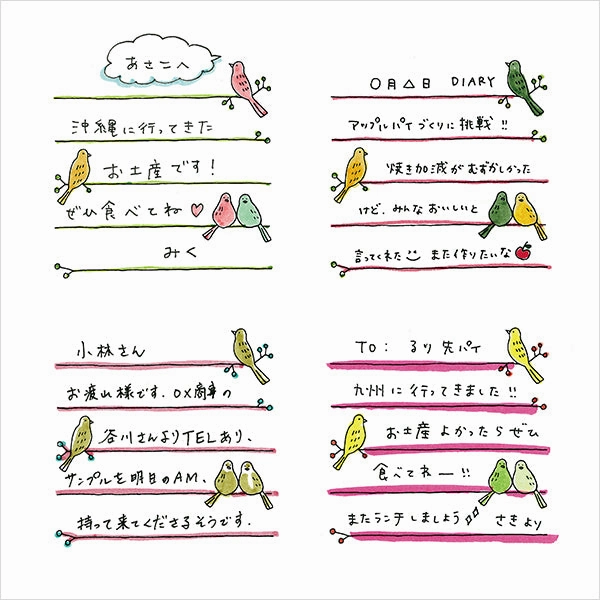 あさこへ
沖縄に行ってきた
お土産です!
ぜひ食べてね♡
みく
〇月△日 DIARY
アップルパイづくりに挑戦!!
焼き加減がむずかしかった
けど、みんなおいしいと
言ってくれた また作りたいな
小林さん
お疲れ様です。OX商事の
谷川さんよりTELあり、
サンプルを明日のAM、
持って来てくださるそうです。
TO: るり先パイ
九州に行ってきました!!
お土産よかったらぜひ
食べてねー!!
またランチしましょう♪ さきより